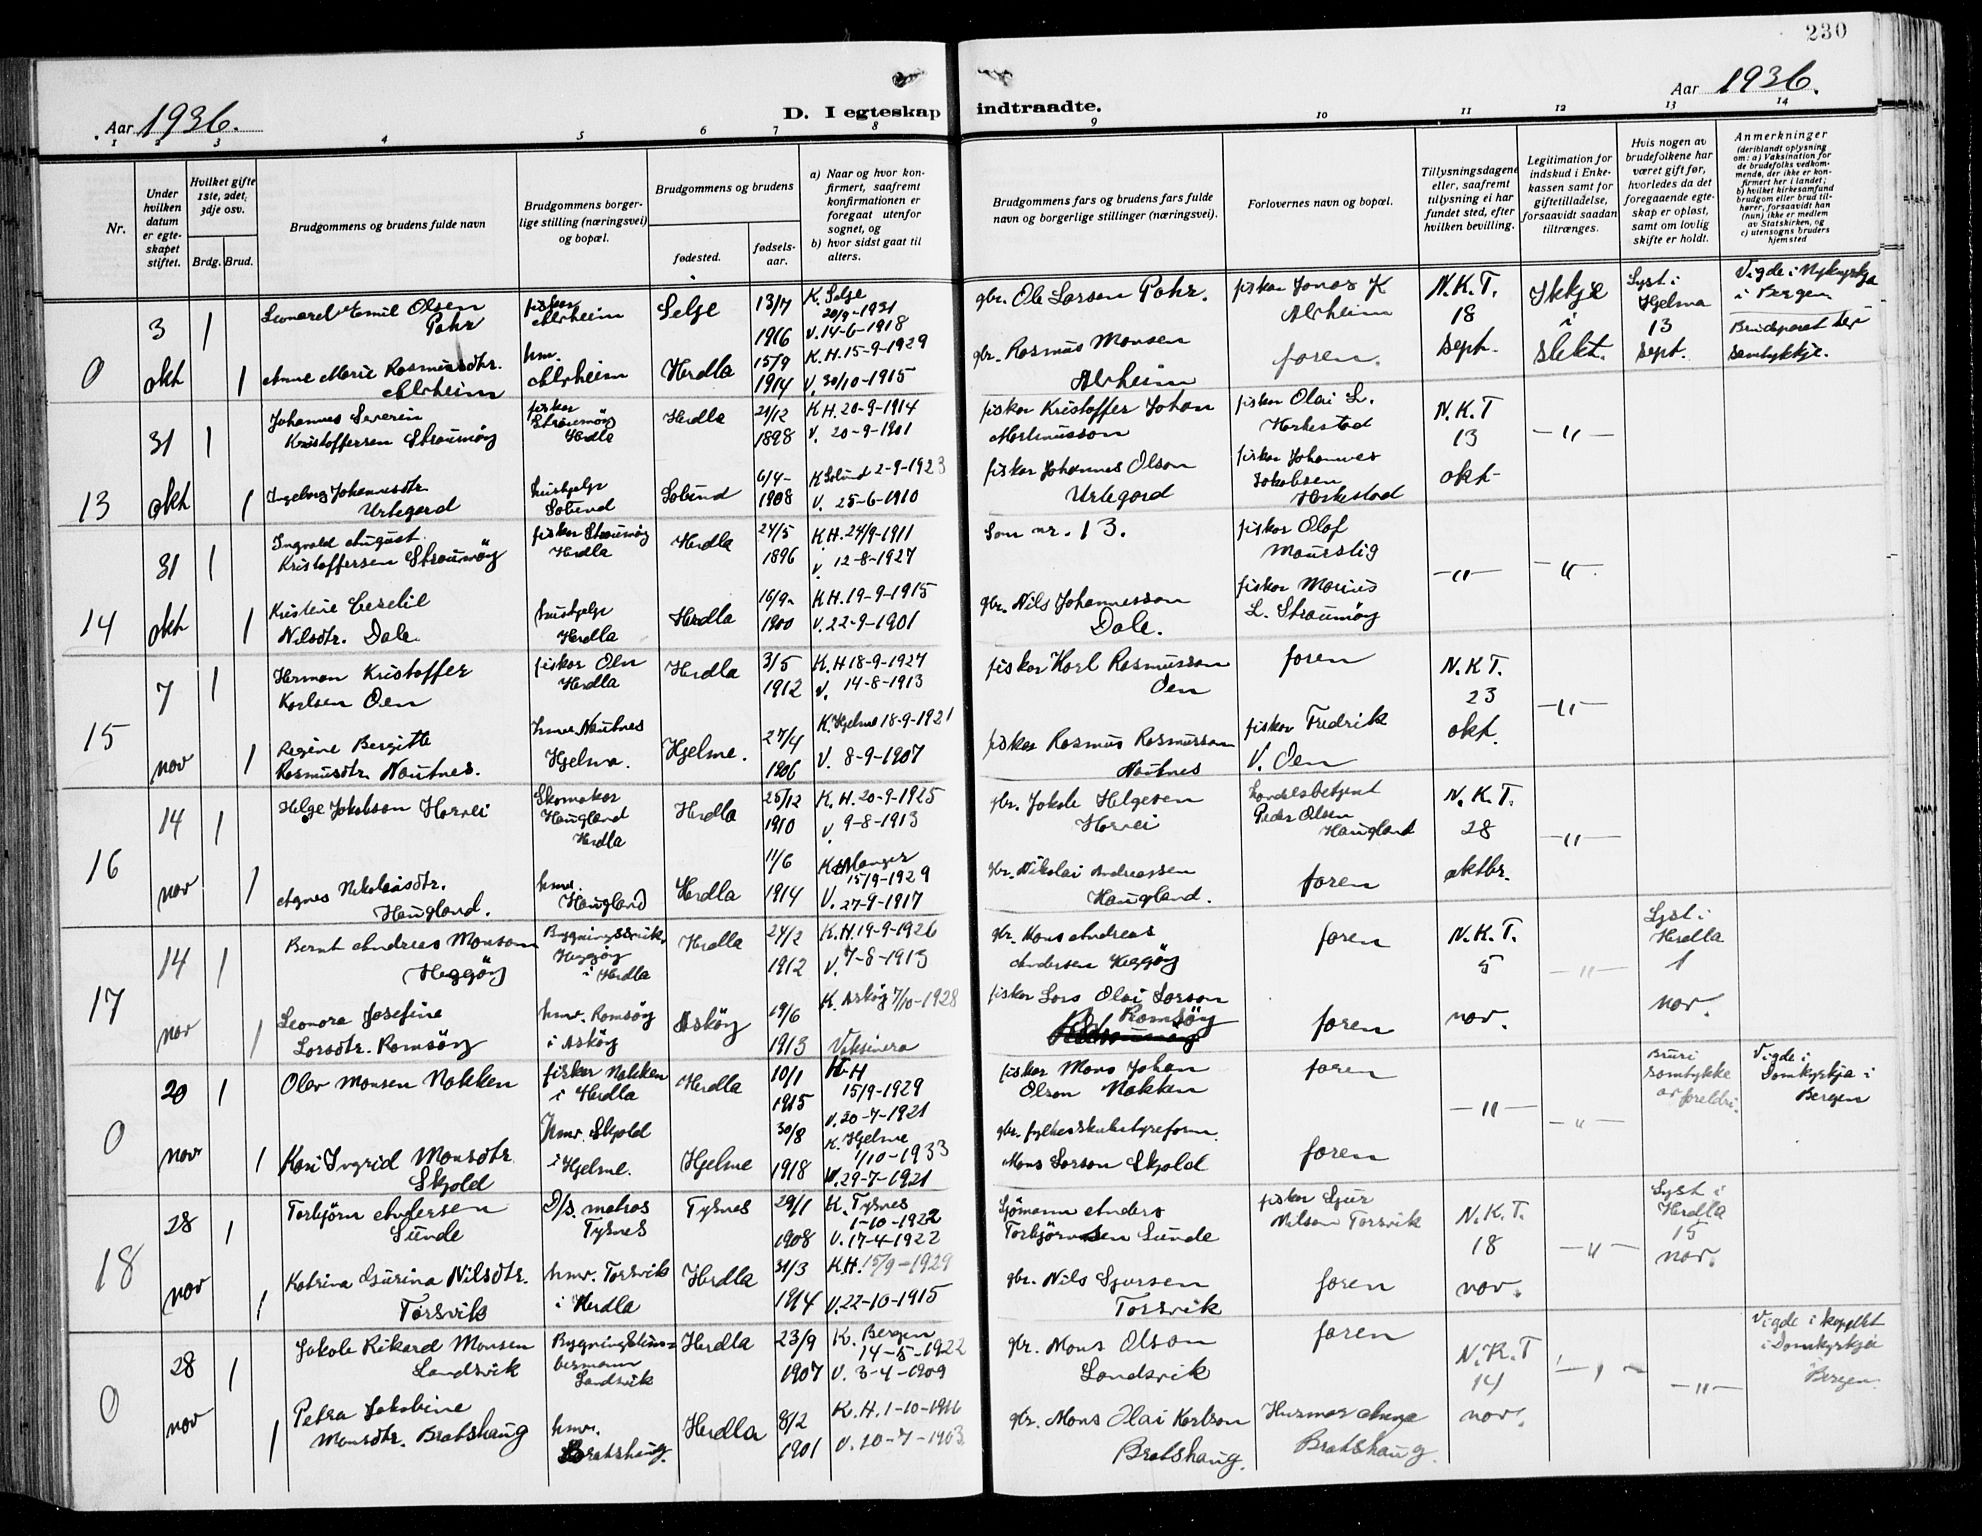 230
Aar 1936.
D. I egteskap indtraadte.
Aar 1936.
1 2 3 4 5 6 7 8 9 10 11 12 13 14
Nr.
Under hvilken datum er egteskapet stiftet.
Hvilket gifte 1ste, 2det, 3dje osv.
Brdg. Brud.
Brudgommens og brudens fulde navn
Brudgommens borgerlige stilling (næringsvei) og bopæl.
Brudgommens og brudens
fødested.
fødselsaar.
a) Naar og hvor konfirmert, saafremt konfirmationen er foregaat utenfor sognet, og
b) hvor sidst gaat til alters.
Brudgommens fars og brudens fars fulde navn og borgerlige stillinger (næringsvei).
Forlovernes navn og bopæl.
Tillysningsdagene eller, saafremt tillysning ei har fundet sted, efter hvilken bevilling.
Legitimation for indskud i Enkekassen samt for giftetilladelse, forsaavidt saadan tiltrænges.
Hvis nogen av brudefolkene har været gift før, hvorledes da det foregaaende egteskap er opløst, samt om lovlig skifte er holdt.
Anmerkninger (deriblandt oplysning om: a) Vaksination for de brudefolks vedkommende, der ikke er konfirmert her i landet; b) hvilket kirkesamfund brudgom eller brud tilhører, forsaavidt han (hun) ikke er medlem av Statskirken, og c) utensogns bruders hjemsted
0
3 okt
1
Leonard Emil Olsen
Pahr
fiskar
Alvheim
Selje
13/7
1916
K. Selje
20/9-1931
V. 14-6-1918
gbr. Ole Larsen Pahr.
fiskar Jonas K
Alvheim
N.K.T.
18
sept.
Ikkje
i
slekt.
Lyst i
Hjelma
13
sept.
Vigde i Nykyrkja
i Bergen
Brudeparet ser
samtykkje.
1
Anne Marie Rasmusdtr.
Alvheim
hm.
Alvheim
Herdla
15/9
1914
K.H. 15-9-1929
V. 30/10-1915
gbr. Rasmus Monsen
Alvheim
faren.
13
31 okt
1
Johannes Severin
Kristoffersen Straumöy
fiskar
Straumöy
Herdla
Herdla
21/12
1898
K.H. 20-9-1914
V. 20-9-1901
fiskar Kristoffer Johan
Martinusson
fiskar Olai L.
Harkestad
N.K.T
13
okt-
-"-
1
Ingeborg Johannesdtr.
Urtegard
hushjelp
Solund
Solund
6/4-
1908
K Solund 2-9-1923
V. 25-6-1910
fiskar Johannes Olson
Urtegard
fiskar Johannes
Jakobsen
Harkestad
14
31 okt
1
Ingvald August
Kristoffersen Straumöy
fiskar Straumöy
Herdla
Herdla
24/5
1896
K.H. 24/9-1911
V. 12-8-1927
Som nr. 13.
fiskar Olaf
Maurslig
-"-
-"-
1
Kristine Cecelie
Nilsdtr. Dale
hushjelp
Herdla
Herdla
16/9-
1900
K.H. 19-9-1915
V. 22-9-1901
gbr. Nils Johannesson
Dale.
fiskar Marius
L. Straumöy
15
7 nov
1
Herman Kristoffer
Karlsen Oen
fiskar Oen
Herdla
Herdla
3/5
1912
K.H 18-9-1927
V. 14-8-1913
fiskar Karl Rasmusson
Oen
faren
N.K.T.
23
okt.
-"-
1
Regine Bergitte
Rasmusdtr. Nautnes.
hmv Nautnes
Hjelma.
Hjelme.
27/4
1906
K. Hjelme 18-9-1921
V. 8-9-1907
fiskar Rasmus Rasmusson
Nautnes
fiskar Fredrik
V. Oen
16
14 nov
1
Helge Jakobson Harvei
Skomakar
Haugland
Herdla
Herdla
25/12
1910
K.H. 20-9-1925
V 9-8-1913
gbr. Jakob Helgesen
Harvei
handelsbetjent
Peder Olsen
Haugland
N.K.T.
28
oktbr.
-"-
1
Agnes Nikolaisdtr.
Haugland.
hmv.
Haugland
Herdla
11/6
1914
K Manger
15/9-1929
V. 27-9-1917
gbr. Nikolai Andreassen
Haugland.
faren
17
14 nov
1
Bernt Andreas Monsen
Heggöy
Heggöy
i Herdla
Herdla
24/2
1912
K.H. 19-9-1926
V. 7-8-1913
gbr. Mons Andreas
Andersen Heggöy
faren
N.K.T.
5
nov.
-"-
Lyst i
Herdla
1
nov.
1
Leonora Josefine
Larsdtr. Ramsöy
hmv. Ramsöy
i Asköy
Asköy
19/6
1913
K. Asköy 7/10-1928
Vaksinera
fiskar Lars Olai Larson
Ramsöy
faren
0
20 nov
1
Olav Monsen Nakken
fiskar Nakken
i Herdla
Herdla
10/1
1915
K H
15/9-1929
V. 20-7-1921
fiskar Mons Johan
Olson Nakken
faren
-"-
-"-
Bruri
samtykke
av foreldri.
Vigde i
Domkyrkja i
Bergen
1
Kari Ingrid Monsdtr
Skjold
hmv. Skjold
i Hjelme.
Hjelme
30/8
1918
K. Hjelme
1/10-1933
V. 29-7-1921
gbr. fylkesskulestyreform.
Mons Larson Skjold
faren
18
28 nov
1
Torbjörn Andersen
Sunde
D/s. matros
Tysnes
Tysnes
29/1
1908
K. Tysnes
1-10-1922
V. 17-4-1922
Sjömann Anders
Torbjörnsen Sunde
fiskar Sjur
Nilsen Torsvik
N.K.T.
18
nov.
-"-
Lyst i
Herdla
15
nov.
1
Katrina Gurina Nilsdtr.
Torsvik
hmv. Torsvik
i Herdla
Herdla
31/3
1914
K.H. 15/9-1929
V. 22-10-1915
gbr. Nils Sjursen
Torsvik
faren
0
28 nov
1
Jakob Rikard Monsen
Landsvik
Landsvik
Herdla
23/9
1907
K. Bergen
14-5-1922
V. 3-4-1909
gbr. Mons Olson
Landsvik
faren
N.K.T
14
nov.
-"-
-"-
Vigde i kapellet
i Domkyrkja
i Bergen
1
Petra Jakobine
Monsdtr. Bratshaug
hmv.
Bratshaug.
Herdla
8/2
1901
K.H. 1-10-1916
V. 20-7-1903
gbr. Mons Olai Karlson
Bratshaug.
Husmor Anna
Bratshaug.